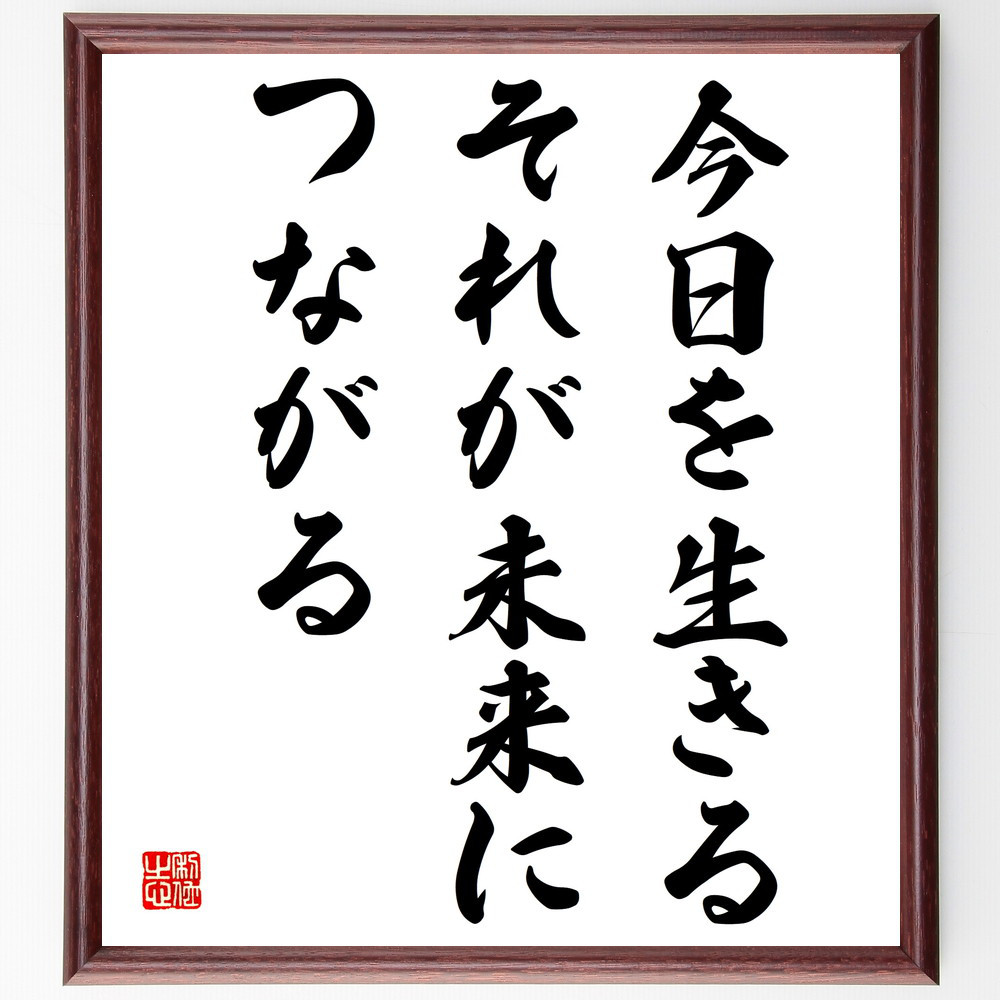 今日を生きる
それが未来に
つながる